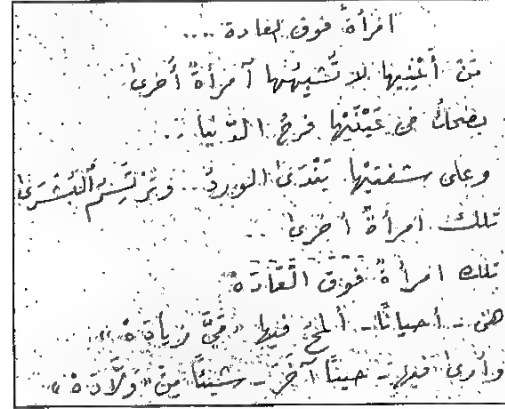 امرأةٌ فوق العادة ....
مَنْ أعْنِيها لا تُشبِهُها آمرأةٌ أُخرى
يضحكُ في عَيْنَيْها فرحُ الدّنيا ..
وعلى شفتيْها يَنْدَى الوردُ .. وتَرْتَسِمُ الْبُشْرَى
تلك امرأةٌ أخرى ..
تلك امرأةٌ فَوْقَ الْعَادَهْ
هي - أحيانًا - ألمحُ فيها «مَيَّ زيادَهْ»
وأرى فيها - حينًا آخَرَ - شيئًا مِنْ «وَلَّادَهْ»